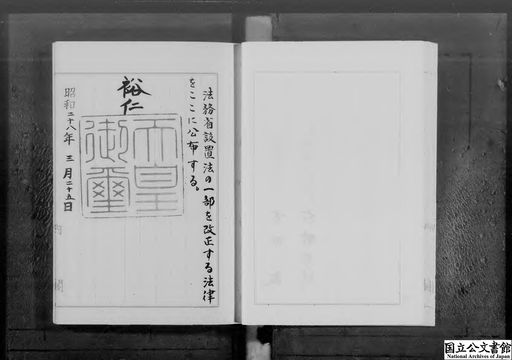 法務省設置法の一部を改正する法律
をここに公布する。
裕仁
天皇
御璽
昭和二十八年三月二十五日
国立公文書館
National Archives of Japan